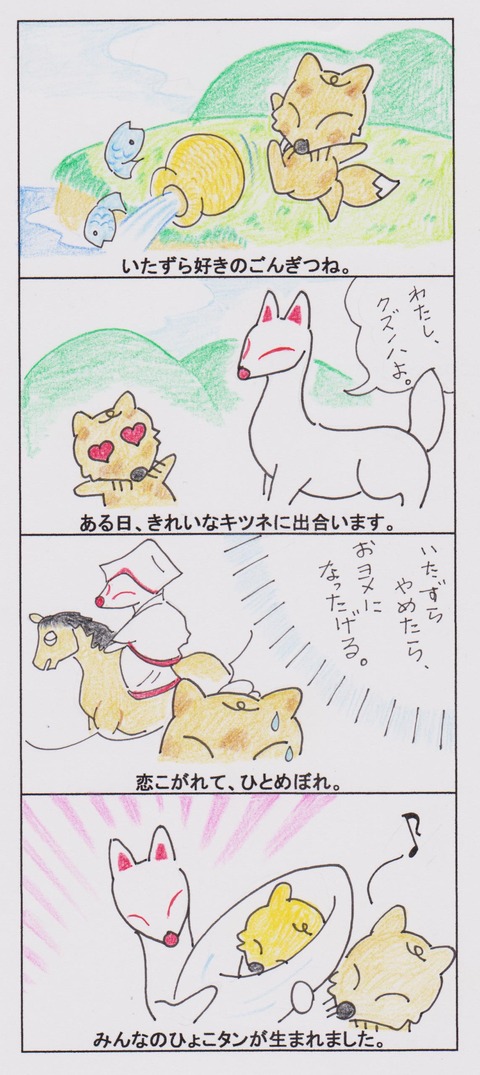 いたずら好きのごんぎつね。
わたし、
クズノハよ。
ある日、きれいなキツネに出合います。
いたずら
やめたら、
おヨメに
なったげる。
恋こがれて、ひとめぼれ。
みんなのひょこタンが生まれました。